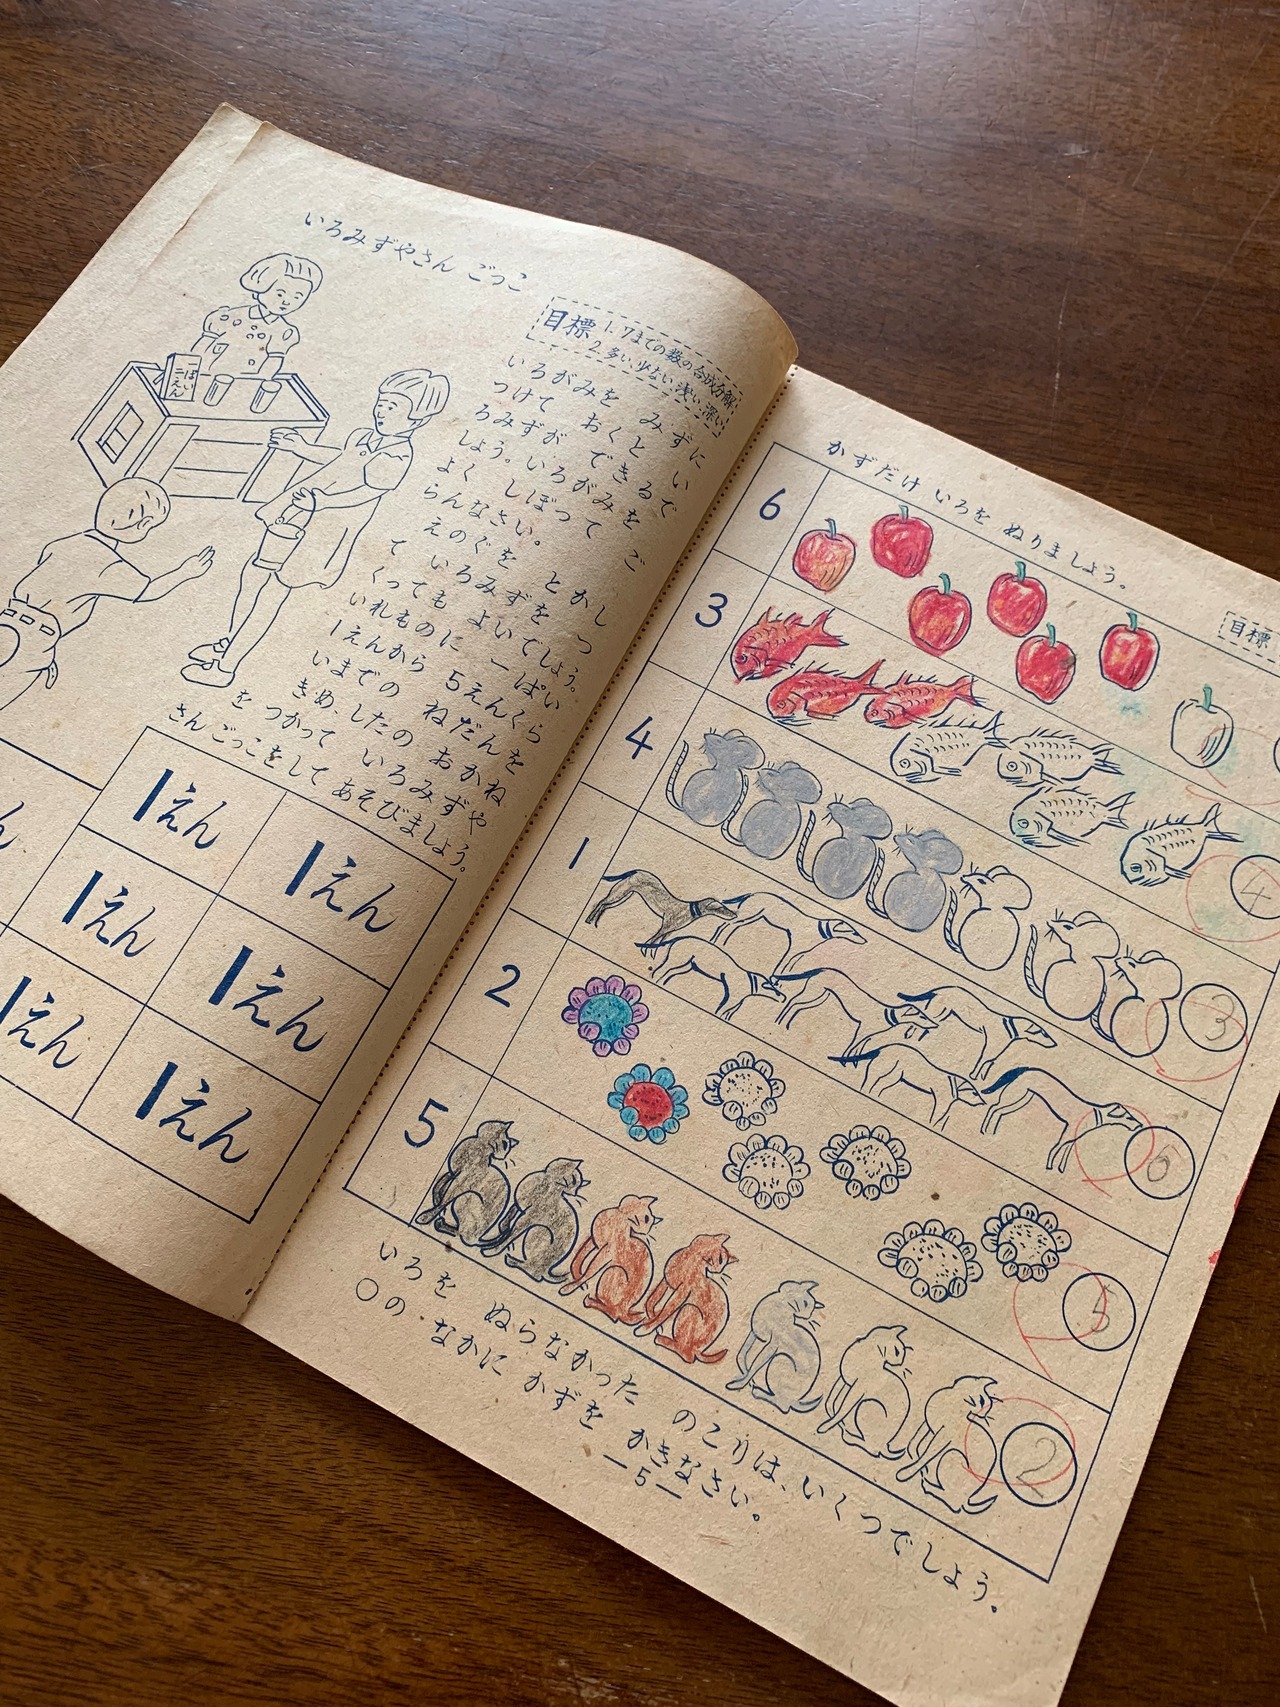 いろみずやさん ごっこ
目標 1. 7までの数の合成分解
2. 多い 少ない 浅い 深い
いろがみを みずに
つけて おくと い
ろみずが できるで
しょう。いろがみを
よく しぼって ご
らんなさい。
えのぐを とかし
て いろみずを つ
くっても よいでしょう。
いれものに 一ぱい
1えんから 5えんくら
いまでの ねだんを
きめ、したの おかね
を つかって いろみずや
さん ごっこをして あそびましょう。
1えん 1えん
1えん 1えん
1えん 1えん
かずだけ いろを ぬりましょう。
目標
6
3
4
4
3
1
6
2
5
5
2
いろを ぬらなかった のこりは、いくつでしょう。
○の なかに かずを かきなさい。
—5—